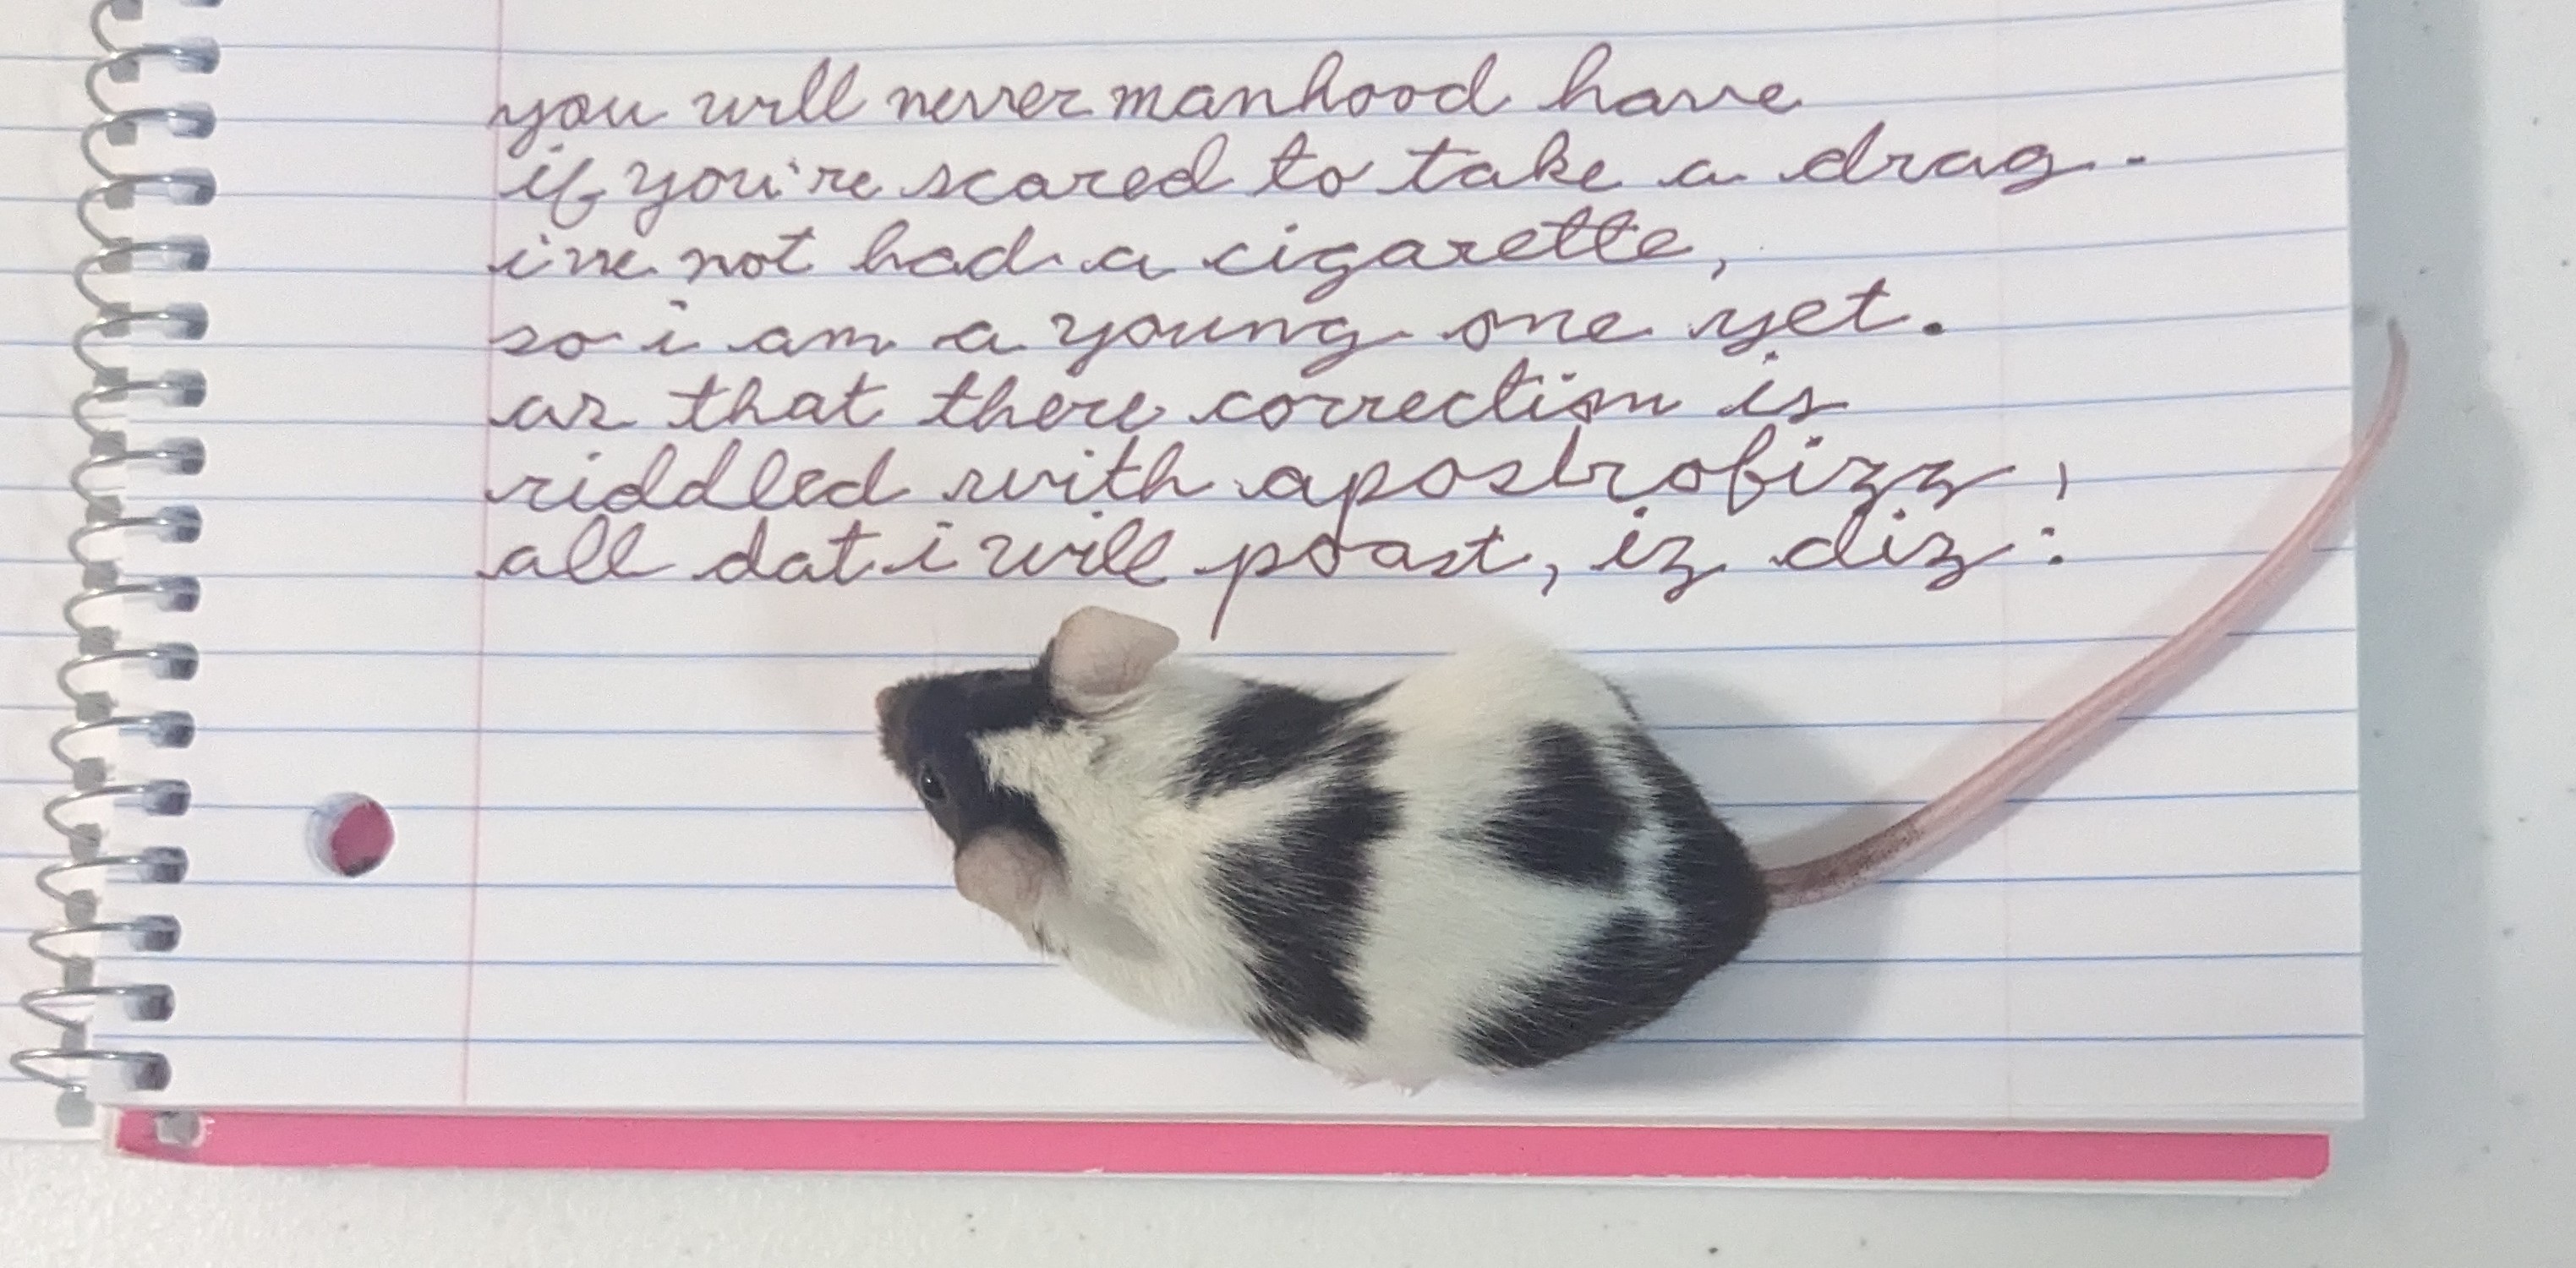 you will never manhood have
if you're scared to take a drag.
i've not had a cigarette,
so i am a young one yet.
as that there correction is
riddled with apostrofizz,
all dat i will poast, iz diz: